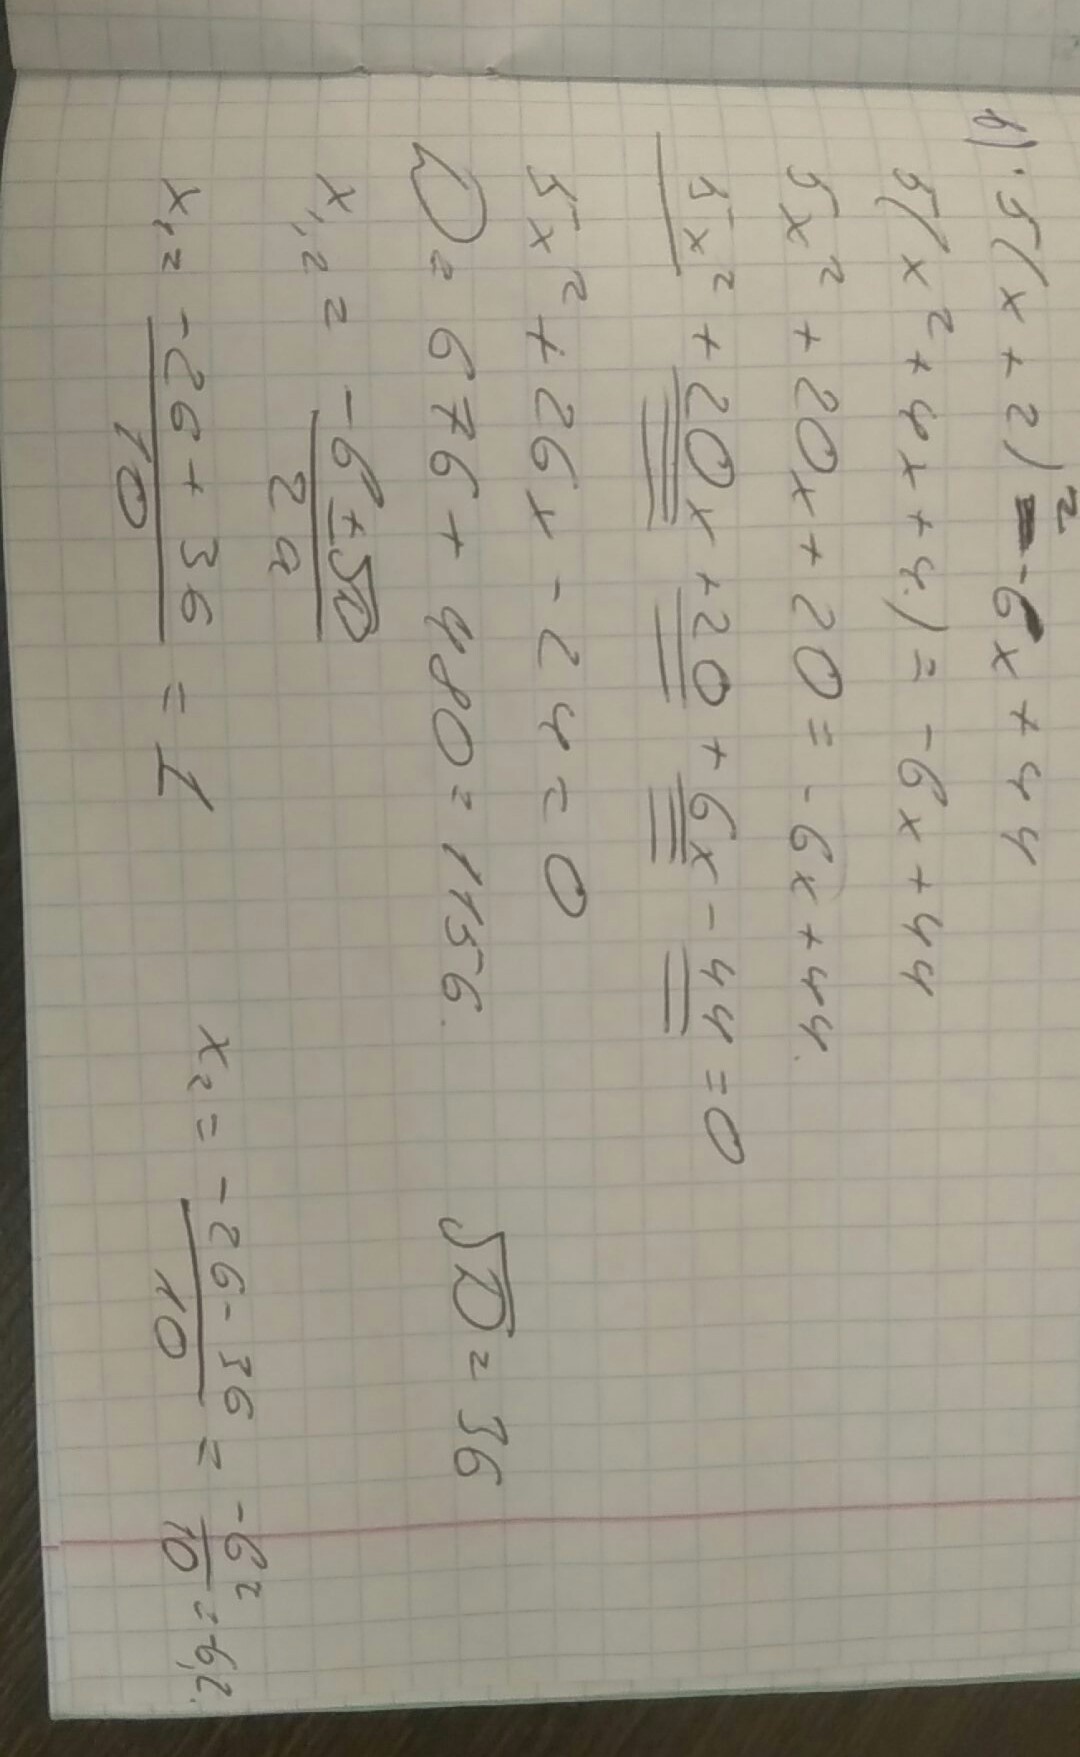 в) 5(x+2)² = -6x+44
5(x²+4x+4) = -6x+44
5x²+20x+20 = -6x+44.
5x²+20x+20+6x-44=0
5x²+26x-24=0
D = 676+480=1156. √D = 36
x₁,₂ = (-б±√D)/(2a)
x₁ = (-26+36)/10 = 1 x₂ = (-26-36)/10 = -62/10 = -6,2.